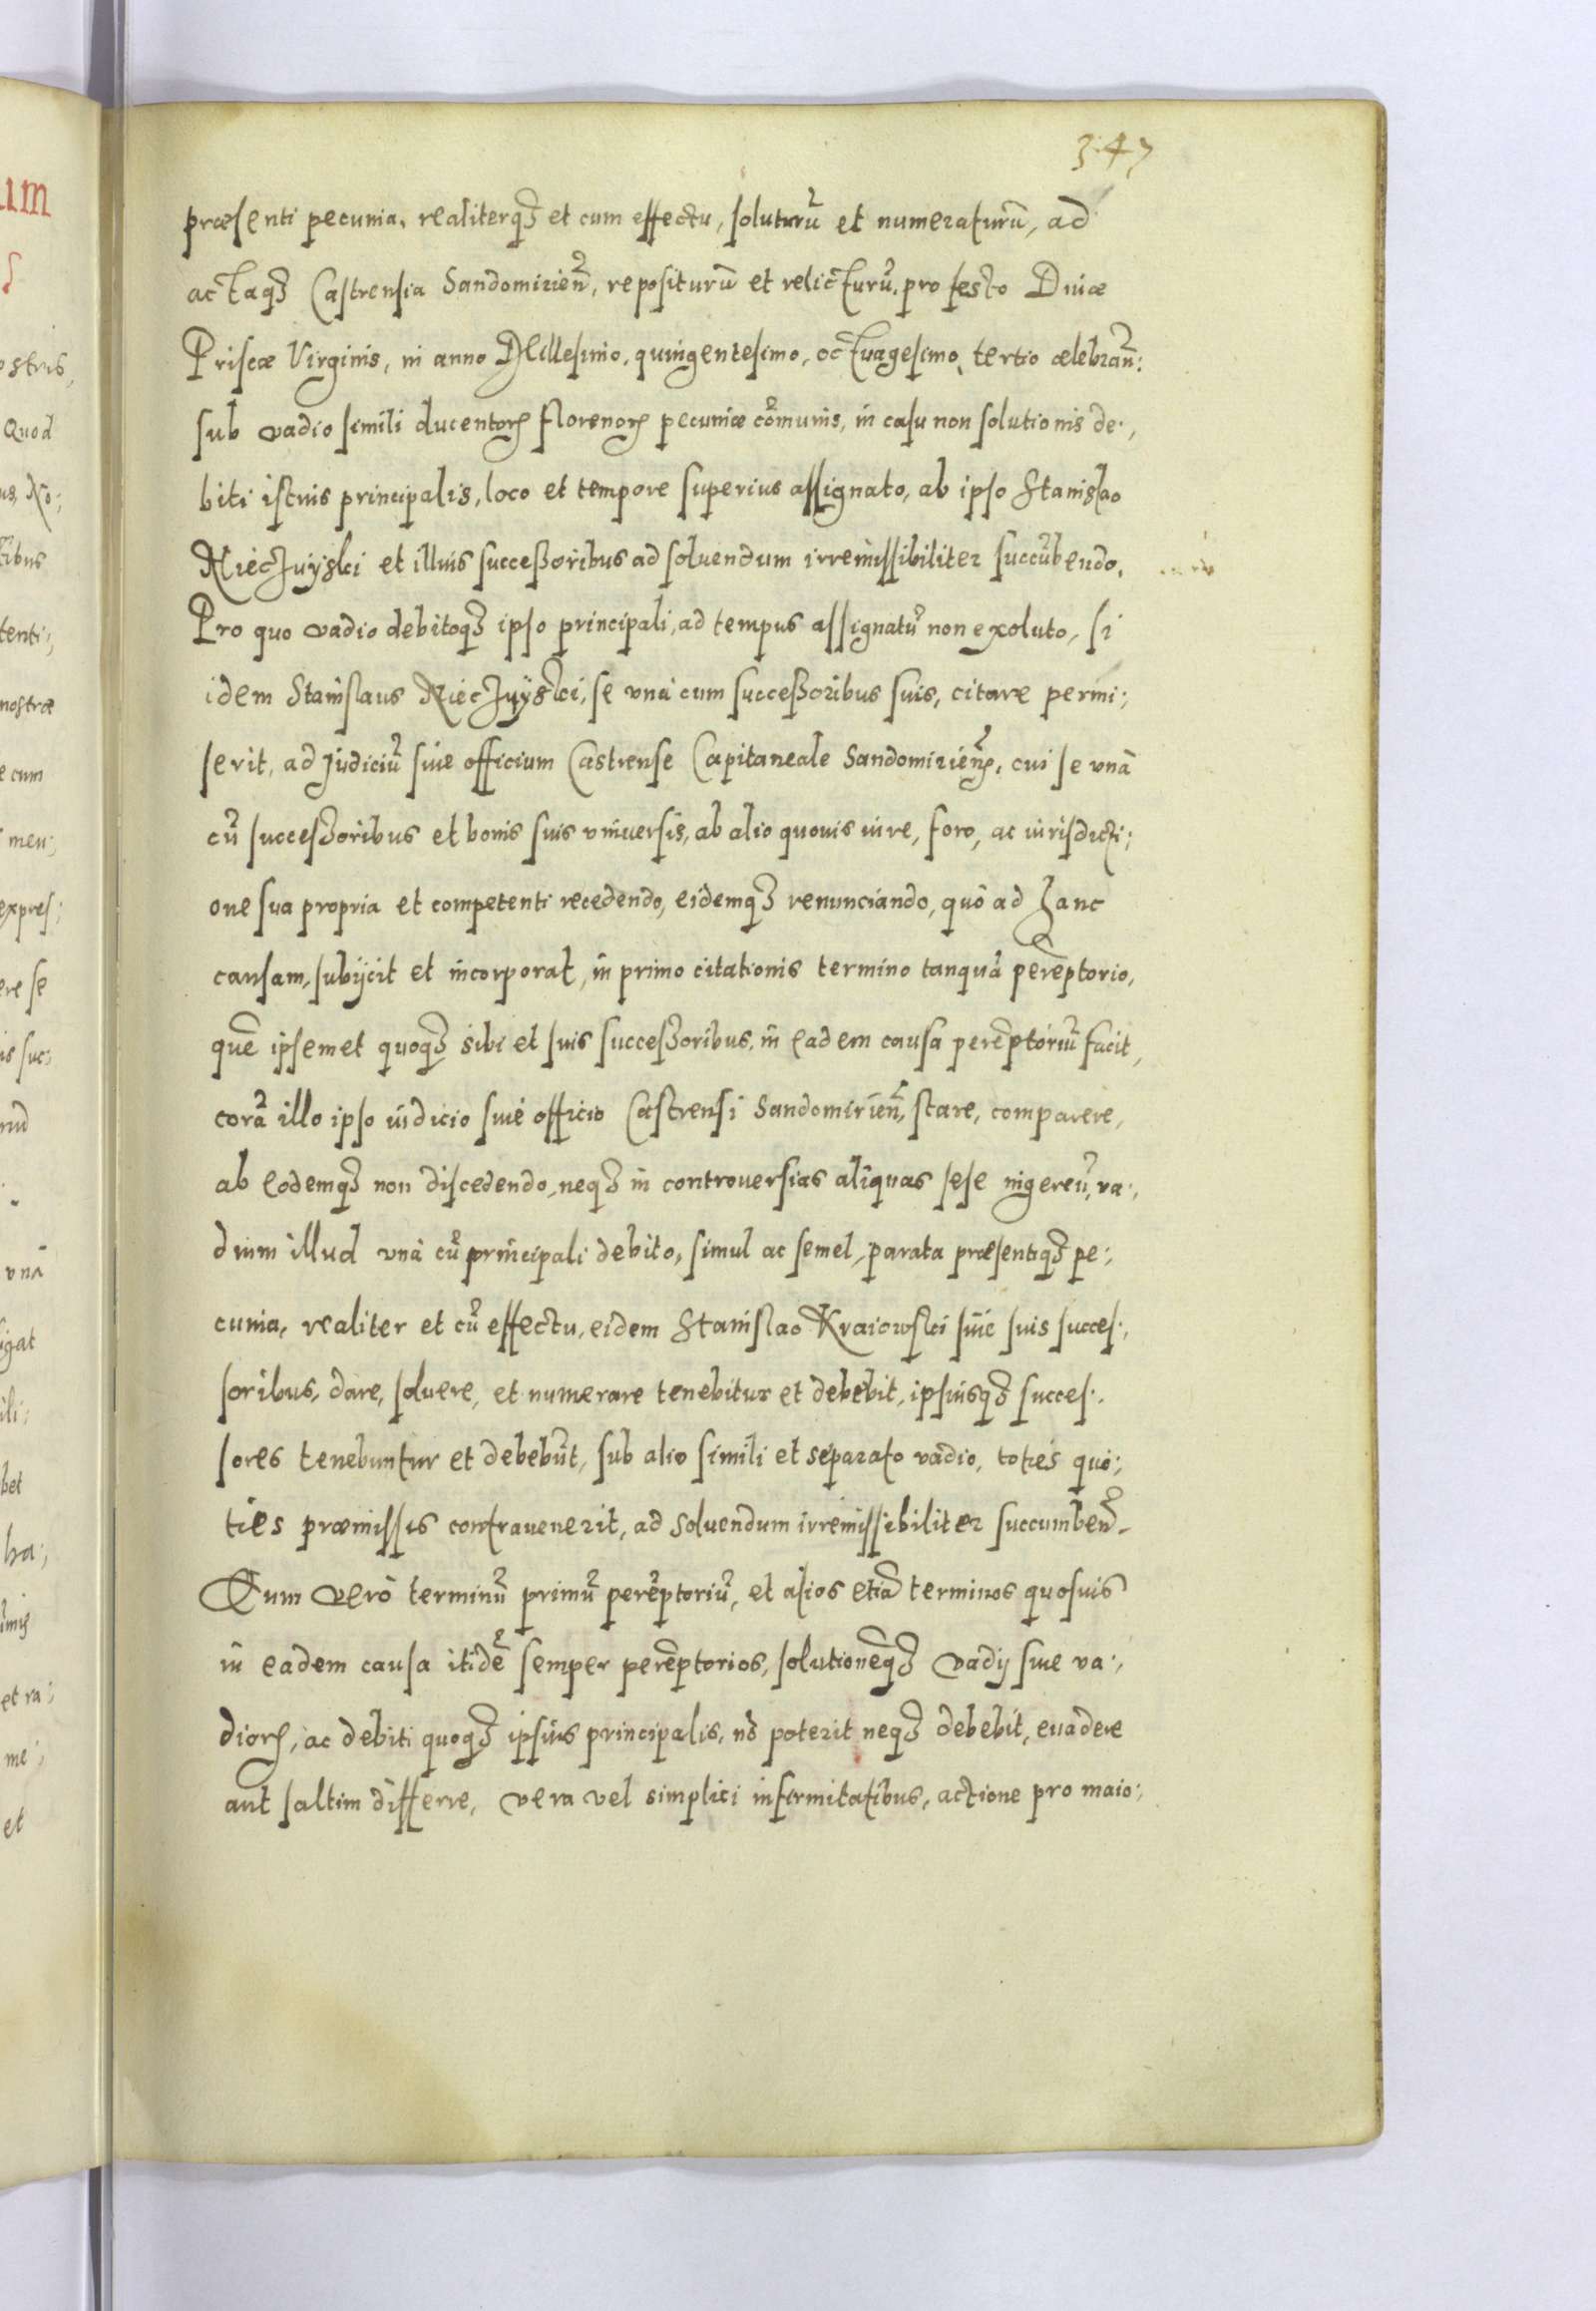 347
præsenti pecunia, realiterqꝫ et cum effectu, soluturū et numeraturū, ad
actaqꝫ Castrensia Sandomirień, repositurū et relicturū, pro festo Diuæ
Priscæ Virginis, in anno Millesimo, quingentesimo, octuagesimo, tertio celebrań:
sub vadio simili ducentorꝝ florenorꝝ pecuniæ cōmunis, in casu non solutionis de:,
biti istius principalis, loco et tempore superius assignato, ab ipso Stanislao
Nieczuÿski et illius successoribus ad soluendum irremissibiliter succūbendo.
Pro quo vadio debitoqꝫ ipso principali, ad tempus assignatū non exoluto, si
idem Stanislaus Nieczuÿski, se vnà cum successoribus suis, citare permi:
serit, ad Judiciū siue officium Castrense Capitaneale Sandomirień, cui se vnà
cū successoribus et bonis suis vniuersis, ab alio quouis iure, foro, ac iurisdicti:
one sua propria et competenti recedendo, eidemqꝫ renunciando, quò ad hanc
causam, subijcit et incorporat, in primo citationis termino tanquā perēptorio,
quē ipsemet quoqꝫ sibi et suis successoribus, in eadem causa perēptoriū facit,
corā illo ipso iudicio siue officio Castrensi Sandomirień, stare, comparere,
ab eodemqꝫ non discedendo, neqꝫ in controuersias aliquas sese ingereń, va:,
dium illud vnà cū principali debito, simul ac semel, parata præsentiqꝫ pe:,
cunia, realiter et cū effectu, eidem Stanislao Kraiowski siue suis succes:,
soribus, dare, soluere, et numerare tenebitur et debebit, ipsiusqꝫ succes:
sores tenebuntur et debebūt, sub alio simili et separato vadio, toties quo:,
ties præmissis contrauenerit, ad soluendum irremissibiliter succumbeń.
Cum verò terminū primū perēptoriū, et alios etiā terminos quosuis
in eadem causa itidē semper perēptorios, solutionēqꝫ vadij siue va:,
diorꝝ, ac debiti quoqꝫ ipsius principalis, nō poterit neqꝫ debebit, euadere
aut saltim differre, vera vel simplici infirmitatibus, actione pro maio: